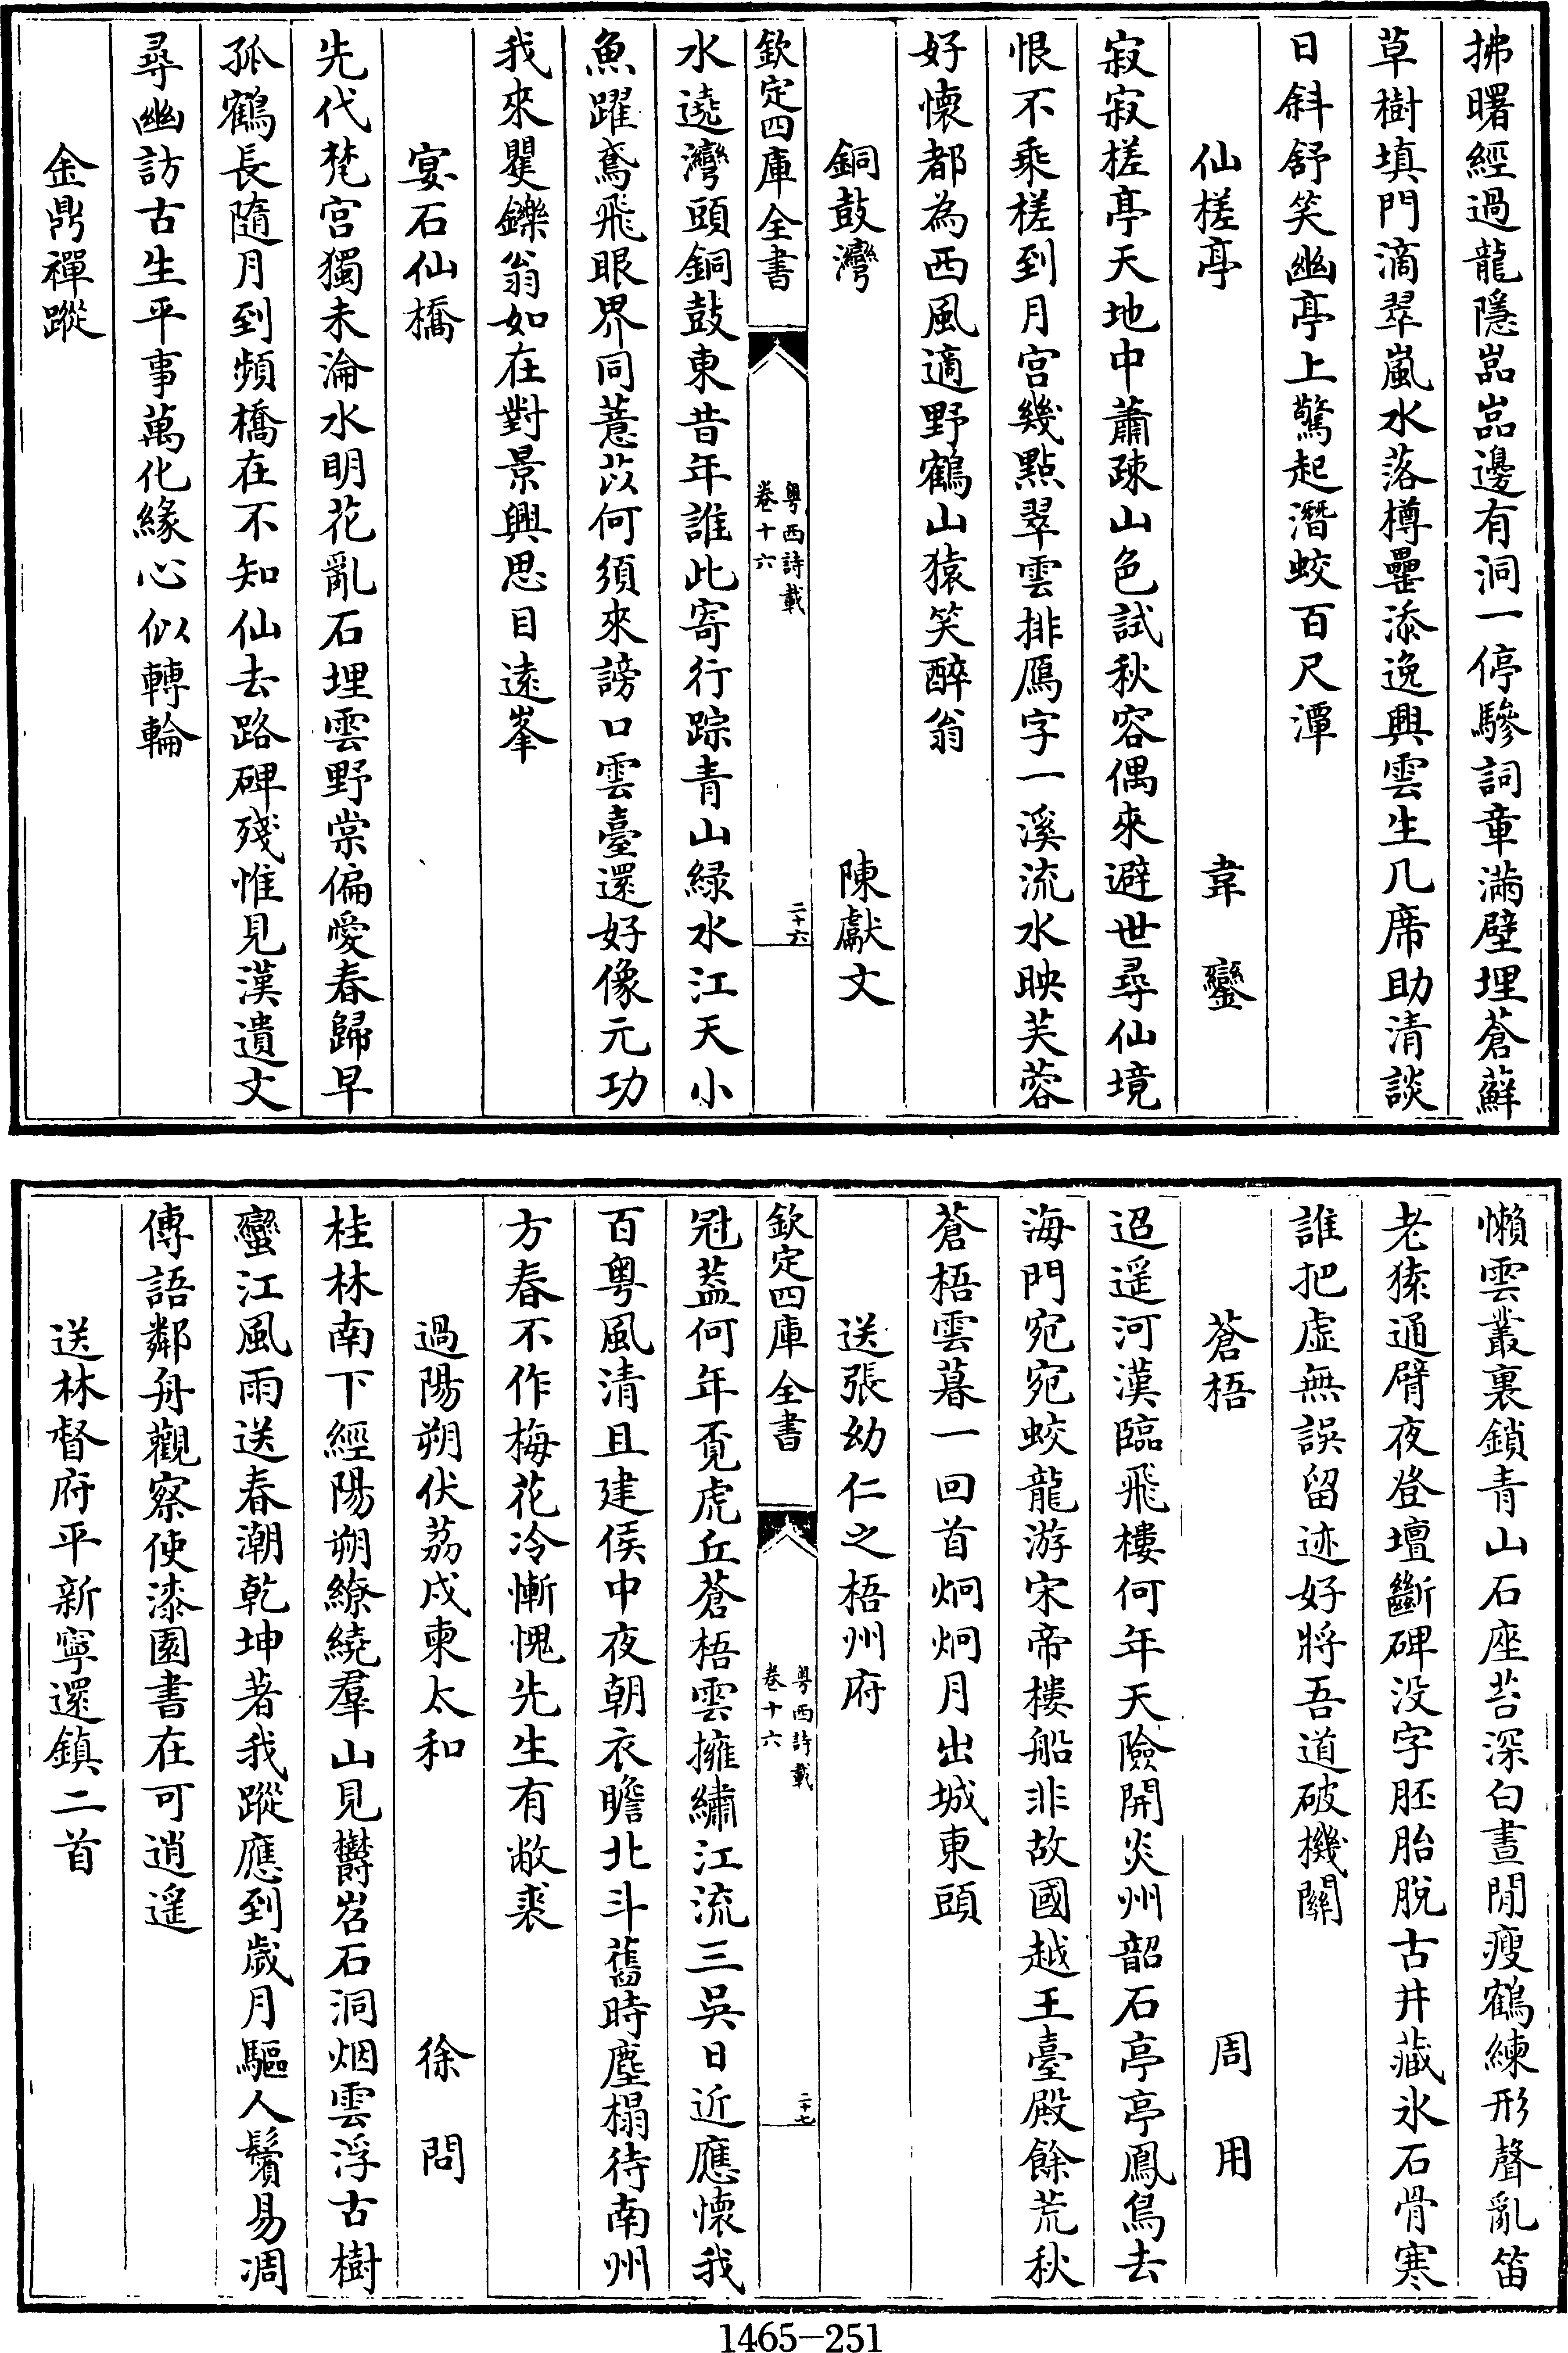 拂曙經過龍隱嵓嵓邊有洞一停驂詞章滿壁埋蒼蘚
草樹填門滴翠嵐水落樽罍添逸興雲生几席助清談
日斜舒笑幽亭上驚起潛蛟百尺潭
仙槎亭 韋鑾
寂寂槎亭天地中蕭疎山色試秋容偶來避世尋仙境
恨不乘槎到月宫幾點翠雲排鴈字一溪流水映芙蓉
好懷都為西風適野鶴山猿笑醉翁
銅鼓灣 陳獻文
欽定四庫全書 粤西詩載 卷十六 二十六
水遶灣頭銅鼓東昔年誰此寄行踪青山緑水江天小
魚躍鳶飛眼界同薏苡何須來謗口雲臺還好像元功
我來矍鑠翁如在對景興思目遠峯
宴石仙橋
先代梵宫獨未淪水明花亂石埋雲野棠偏愛春歸早
孤鶴長隨月到頻橋在不知仙去路碑殘惟見漢遺文
尋幽訪古生平事萬化緣心似轉輪
金鼎禪蹤
懶雲叢裏鎖青山石座苔深白晝閒瘦鶴練形聲亂笛
老猿通臂夜登壇斷碑没字胚胎脱古井藏氷石骨寒
誰把虚無誤留迹好將吾道破機關
蒼梧 周用
迢遥河漢臨飛樓何年天險開炎州韶石亭亭鳳鳥去
海門宛宛蛟龍游宋帝樓船非故國越王臺殿餘荒秋
蒼梧雲暮一回首炯炯月出城東頭
送張幼仁之梧州府
欽定四庫全書 粤西詩載 卷十六 二十七
冠蓋何年覔虎丘蒼梧雲擁繡江流三吳日近應懷我
百粤風清且建侯中夜朝衣瞻北斗舊時塵榻待南州
方春不作梅花冷慚愧先生有敝裘
過陽朔伏荔戍柬太和 徐問
桂林南下經陽朔繚繞羣山見欝岩石洞烟雲浮古樹
蠻江風雨送春潮乾坤著我蹤應到歲月驅人鬢易凋
傳語鄰舟觀察使漆園書在可逍遥
送林督府平新寧還鎮二首
1465—251